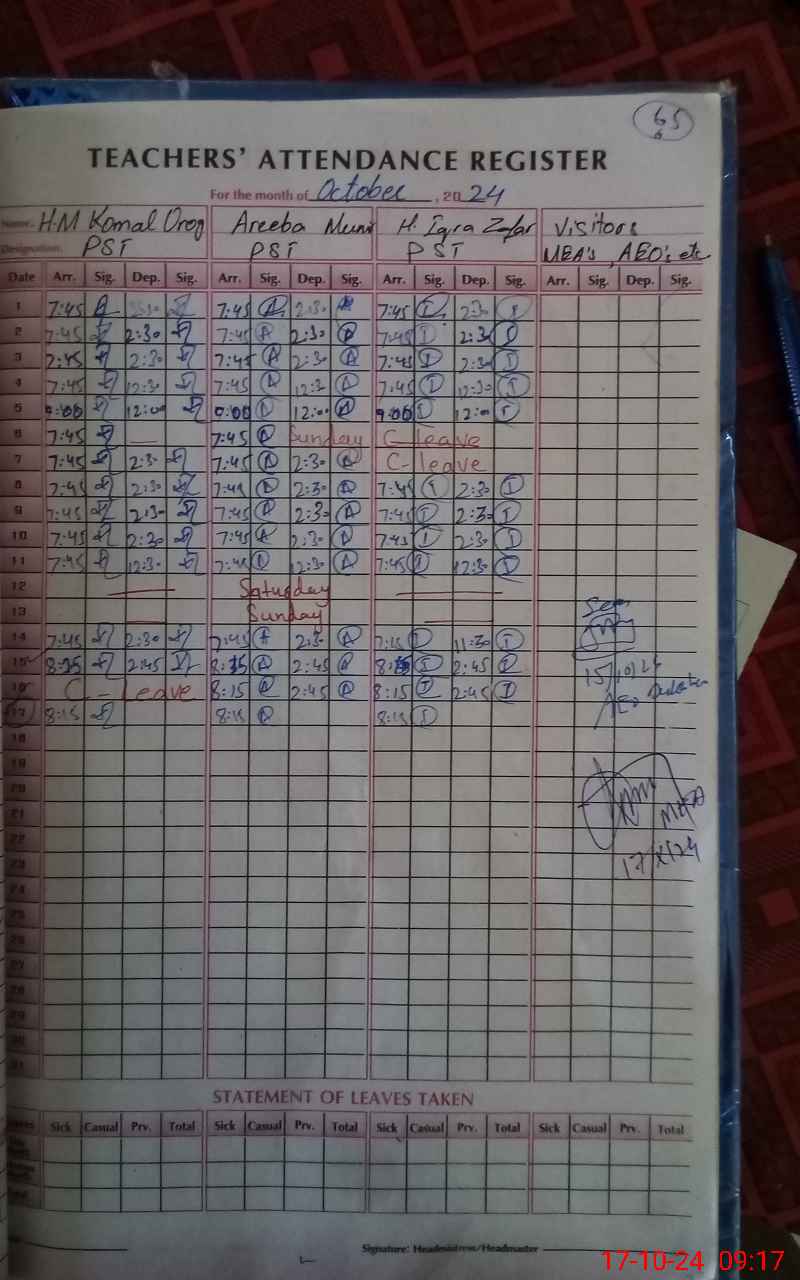 65
TEACHERS' ATTENDANCE REGISTER
For the month of October, 2024
Name: H.M Komal Areeba H. Iqra Zafar Visitors
Designation: PST PST PST MEA's, AEO's etc
Date Arr. Sig. Dep. Sig. Arr. Sig. Dep. Sig. Arr. Sig. Dep. Sig. Arr. Sig. Dep. Sig.
1 7:45 7:45 A 2:30 7:45 I 2:30 I
2 7:45 2:30 7:45 A 2:30 A 7:45 I 2:30 I
3 7:45 2:30 7:45 A 2:30 A 7:45 I 2:30 I
4 7:45 12:30 7:45 A 12:30 A 7:45 I 12:30 I
5 9:00 12:00 9:00 A 12:00 A 9:00 I 12:00 I
6 7:45 — 7:45 A Sunday C-leave
7 7:45 2:30 7:45 A 2:30 A C-leave
8 7:45 2:30 7:45 A 2:30 A 7:45 I 2:30 I
9 7:45 2:30 7:45 A 2:30 A 7:45 I 2:30 I
10 7:45 2:30 7:45 A 2:30 A 7:45 I 2:30 I
11 7:45 12:30 7:45 A 12:30 A 7:45 I 12:30 I
12 — Saturday —
13 — Sunday —
14 7:45 2:30 7:45 A 2:30 A 7:45 I 11:30 I
15 8:15 2:45 8:15 A 2:45 A 8:15 I 2:45 I
15/10/24
16 C-Leave 8:15 A 2:45 A 8:15 I 2:45 I
17 8:15 8:15 A 8:15 I
18
19
20
21
22
17/X/24
23
24
25
26
27
28
29
30
31
STATEMENT OF LEAVES TAKEN
Leaves Sick Casual Prv. Total Sick Casual Prv. Total Sick Casual Prv. Total Sick Casual Prv. Total
Signature: Headmistress/Headmaster
17-10-24 09:17